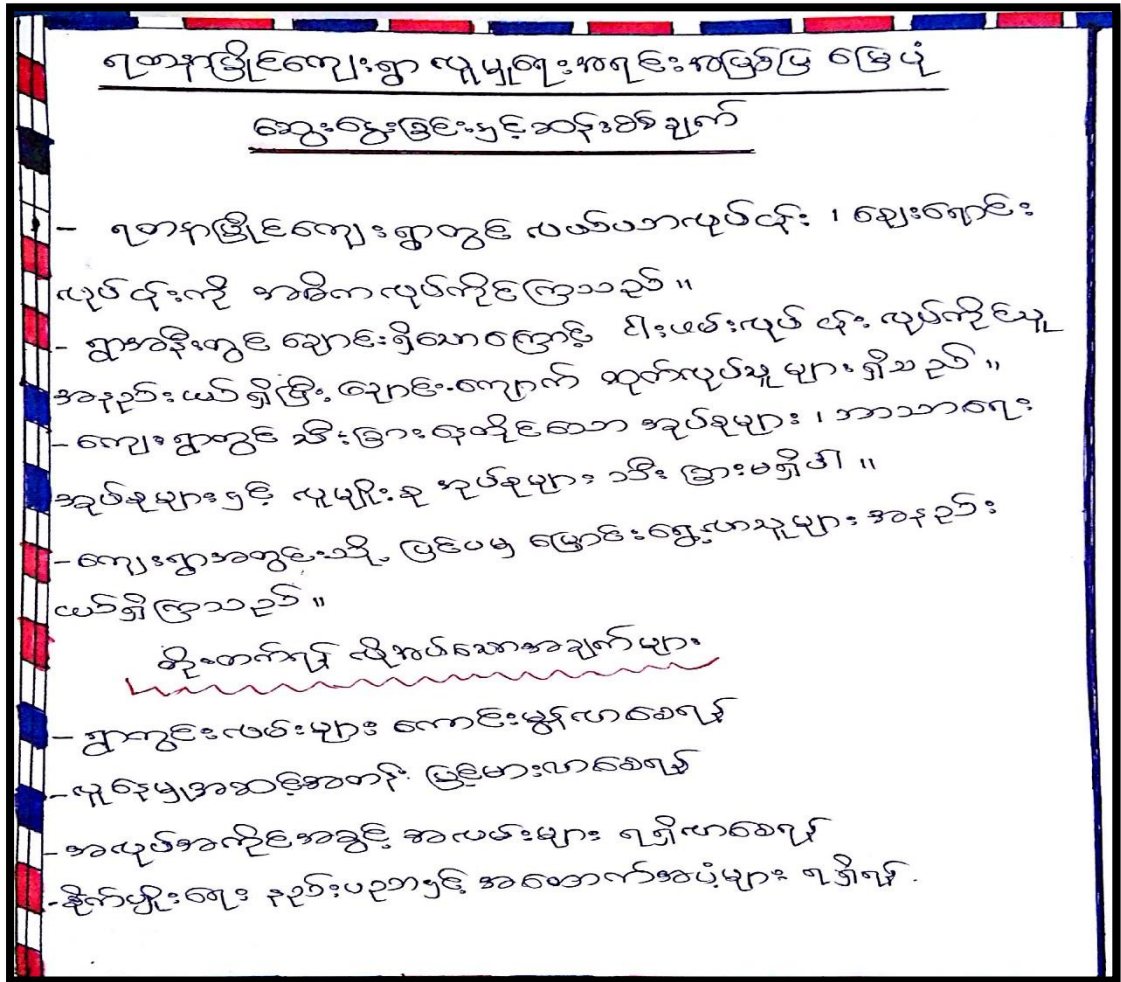 ရတနာမြိုင်ကျေးရွာ လူမှုရေးအရင်းအမြစ်ပြ မြေပုံ
ဆွေးနွေးခြင်းနှင့်ဆန်းစစ်ချက်
- ရတနာမြိုင်ကျေးရွာတွင် လယ်ယာလုပ်ငန်း ၊ ဈေးရောင်း
လုပ်ငန်းကို အဓိကလုပ်ကိုင်ကြသည်။
- ရွာအနီးတွင် ချောင်းရှိသောကြောင့် ငါးဖမ်းလုပ်ငန်း လုပ်ကိုင်သူ
အနည်းငယ်ရှိပြီး၊ ချောင်းကျောက် ထုတ်လုပ်သူများရှိသည်။
- ကျေးရွာတွင် သီးခြားနေထိုင်သော အုပ်စုများ ၊ ဘာသာရေး
အုပ်စုများနှင့် လူမျိုးစု အုပ်စုများ သီးခြားမရှိပါ။
- ကျေးရွာအတွင်းသို့ ပြင်ပမှ ပြောင်းရွှေ့လာသူများ အနည်း
ငယ်ရှိကြသည်။
တိုးတက်ရန် လိုအပ်သောအချက်များ
- ရွာတွင်းလမ်းများ ကောင်းမွန်လာစေရန်
- လူနေမှုအဆင့်အတန်း မြင့်မားလာစေရန်
- အလုပ်အကိုင်အခွင့် အလမ်းများ ရရှိလာစေရန်
- စိုက်ပျိုးရေး နည်းပညာနှင့် အထောက်အပံ့များ ရရှိရန်.